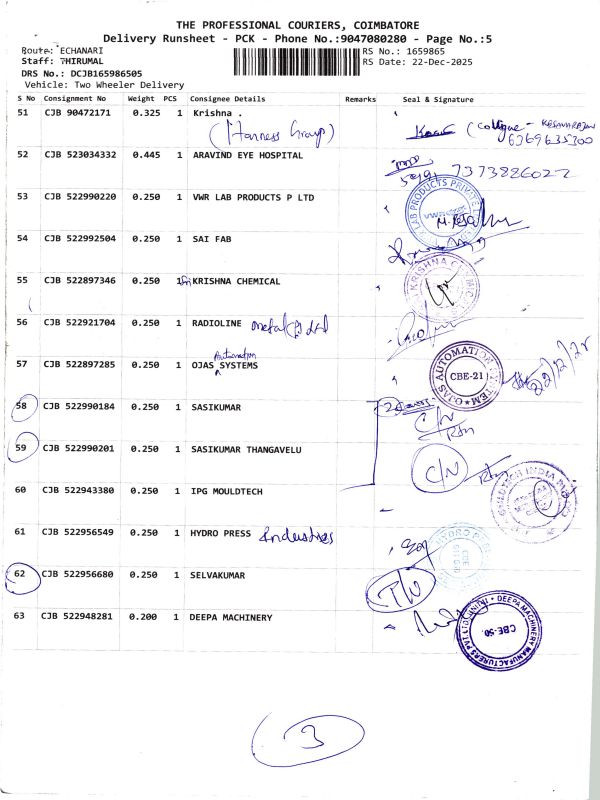 THE PROFESSIONAL COURIERS, COIMBATORE
Delivery Runsheet - PCK - Phone No.:9047080280 - Page No.:5
Route: ECHANARI
RS No.: 1659865
Staff: THIRUMAL
RS Date: 22-Dec-2025
DRS No.: DCJB165986505
Vehicle: Two Wheeler Delivery
S No Consignment No Weight PCS Consignee Details Remarks Seal & Signature
51 CJB 90472171 0.325 1 Krishna .
(Harness Group)
(Collgue - KESAVARAJAN
6369635300
52 CJB 523034332 0.445 1 ARAVIND EYE HOSPITAL
7373886022
53 CJB 522990220 0.250 1 VWR LAB PRODUCTS P LTD
LAB PRODUCTS PRIVATE
54 CJB 522992504 0.250 1 SAI FAB
55 CJB 522897346 0.250 1 KRISHNA CHEMICAL
KRISHNA
56 CJB 522921704 0.250 1 RADIOLINE metal (P) Ltd
57 CJB 522897285 0.250 1 OJAS Automation SYSTEMS
OJAS AUTOMATION SYSTEM
CBE-21
22/12/25
58 CJB 522990184 0.250 1 SASIKUMAR
C/N
Rtn
59 CJB 522990201 0.250 1 SASIKUMAR THANGAVELU
C/N Rtn
60 CJB 522943380 0.250 1 IPG MOULDTECH
MOULDTECH INDIA
61 CJB 522956549 0.250 1 HYDRO PRESS Industries
HYDRO
62 CJB 522956680 0.250 1 SELVAKUMAR
63 CJB 522948281 0.200 1 DEEPA MACHINERY
DEEPA MACHINERY MANUFACTURERS PVT. LTD
CBE-50
3